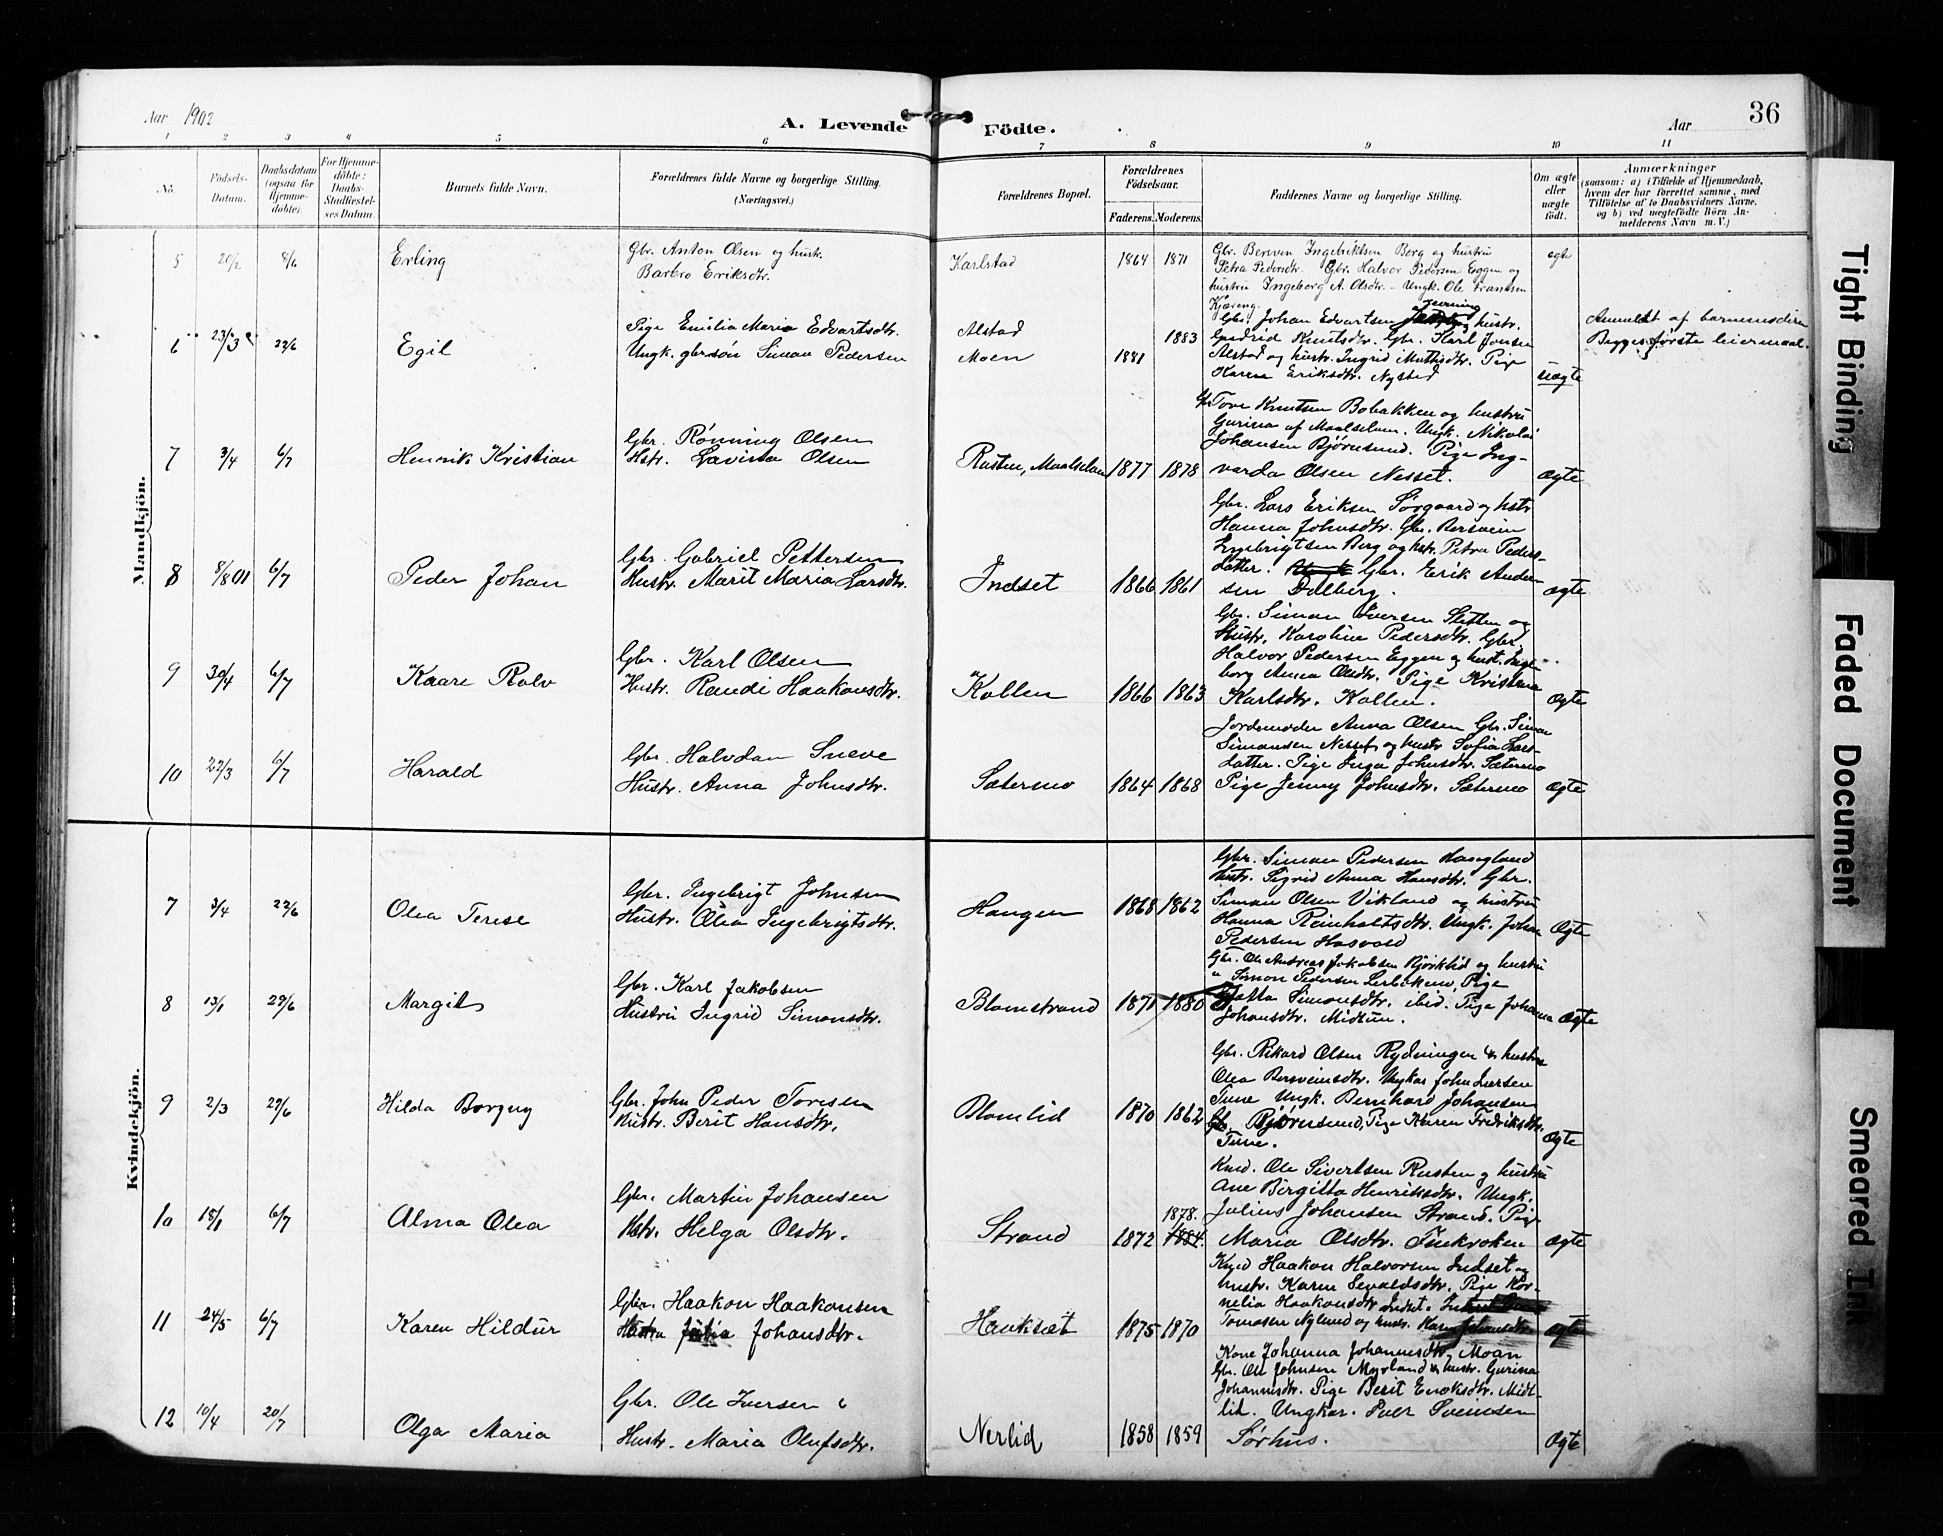 Aar 1902
A. Levende
Födte.
Aar
36
1 2 3 4 5 6 7 8 9 10 11
No.
Födsels-Datum.
Daabsdatum (ogsaa for Hjemme-döbte).
For Hjemme-döbte: Daabs-Stadfæstel-ses Datum.
Barnets fulde Navn.
Forældrenes fulde Navne og borgerlige Stilling. (Næringsvei.)
Forældrenes Bopæl.
Forældrenes Födselsaar.
Faderens. Moderens.
Faddernes Navne og borgerlige Stilling.
Om ægte eller uægte födt.
Anmærkninger
(saasom: a) i Tilfælde af Hjemmedaab, hvem der har forrettet samme, med Tilföielse af to Daabsvidners Navne. og b) ved uægtefödte Börn An-melderens Navn m. V.)
Mandkjön.
5 20/2 8/6 Erling
Gbr. Anton Olsen og hustr.
Barbro Eriksdtr.
Karlstad 1864 1871
Gbr. Bersven Ingebriktsen Berg og hustru
Petra Pedersdtr. Gbr. Halvor Pedersen Eggen og
hustru Ingeborg A. Olsdtr. - Ungk. Ole Frantsen
Kjæreng.
egte
6 23/3 22/6 Egil
Pige Emilia Maria Edvartsdtr.
Ungk. gbr.søn Simon Pedersen
Alstad 1883
Moen 1881
Gbr. Johan Edvartsen hustr.
Gudrid Knutsdtr. Gbr. Karl Jonsen
Alstad og hustr. Ingrid Mathisdtr. Pige
Karen Eriksdtr. Nysted
uægte
Anmeldt af barnemoderen
Begges første leiermaal.
7 3/4 6/7 Henrik Kristian
Gbr. Rønning Olsen
Hstr. Lavisa Olsen
Rusten, Maalselven 1877 1878
Gbr. Tore Knutsen Bobakken og hustru
Gurina af Maalselven. Ungk. Nikolai
Johansen Bjørnsund. Pige Ing-
varda Olsen Nesset.
ægte
8 8/8 01 6/7 Peder Johan
Gbr. Gabriel Pettersen
Hustr. Marit Maria Larsdtr.
Indset 1866 1861
Gbr. Lars Eriksen Sørgaard og hstr
Hanna Johnsdtr. Gbr. Bersvein
Ingebrigtsen Berg og hstr. Petra Peders-
datter. Gbr. Erik Ander-
sen Dalberg.
ægte
9 30/4 6/7 Kaare Rolv
Gbr. Karl Olsen
Hustr. Randi Haakonsdtr.
Kollen 1866 1863
Gbr. Simon Iversen Sletten og
Hustr. Karoline Pedersdtr. Gbr.
Halvor Pedersen Eggen og hust. Inge-
borg Anna Olsdtr. Pige Kristina
Karlsdtr. Kollen.
ægte
10 22/3 6/7 Harald
Gbr. Halvdan Sneve
Hustr. Anna Johnsdtr.
Sætermo 1864 1868
Jordemoder Anna Olsen Gbr. Simon
Simonsen Nesset og hustr Sofia Lars-
datter. Pige Inga Johnsdtr. Sætermo
Pige Jenny Johnsdtr. Sætermo
Ægte
Kvindekjön.
7 3/4 22/6 Olea Terese
Gbr. Ingebrigt Johnsen
Hustr. Olea Ingebrigtsdtr.
Haugen 1868 1862
Gbr. Simon Pedersen Haugland
Hustr. Sigrid Anna Hansdtr. Gbr.
Simon Olsen Vikland og hustru
Hanna Reinholtsdtr. Ungk. Johan
Pedersen Hasvold
Ægte
8 13/1 29/6 Margit
Gbr. Karl Jakobsen
Hustru Ingrid Simonsdtr.
Blomstrand 1871 1880
Gbr. Ole Andreas Jakobsen Bjørklid og hustru
" Simon Pedersen Pige
Simonsdtr. ibid. Pige Johanna
Johansdtr. Midtun.
Ægte
9 2/3 29/6 Hilda Borgny
Gbr. John Peder Toresen
Hustr. Berit Hansdtr.
Blomlid 1870 1862
Gbr. Rikard Olsen Rydningen & hustru
Olea Bersveinsdtr. Ungkar John Iversen
Tune Ungk. Bernhard Johansen
Bjørnsund, Pige Karen Fredriksdtr.
Tune.
Ægte
10 18/1 6/7 Alma Olea
Gbr. Martin Johansen
Hstr. Helga Olsdtr.
Strand 1872 1878. 1884.
Knud. Ole Sivertsen Rusten og hustru
Ane Birgitta Henriksdtr. Ungk.
Julius Johansen Strand. Pige
Maria Olsdtr. Finkroken
Ægte
11 24/5 6/7 Karen Hildur
Gbr. Haakon Haakonsen
Johansdtr.
Hauksæt 1875 1870
Haakon Halvorsen Indset og
hustr. Karen Sevaldsdtr. Pige Kor-
nelia Haakonsdtr Indset.
Tomasen Nylund og hustr.
Kone Johanna Johannesdtr. Moan
ægte
12 10/4 20/7 Olga Maria
Gbr. Ole Iversen
Hustr. Maria Olufsdtr.
Nerlid 1858 1859
Gbr. Ole Johnsen Myrland & hustr. Gurina
Johannesdtr. Pige Berit Enoksdtr. Midt-
lid. Ungkar. Iver Sveinsen
Sørhus.
Ægte
Tight Binding
Faded Document
Smeared Ink